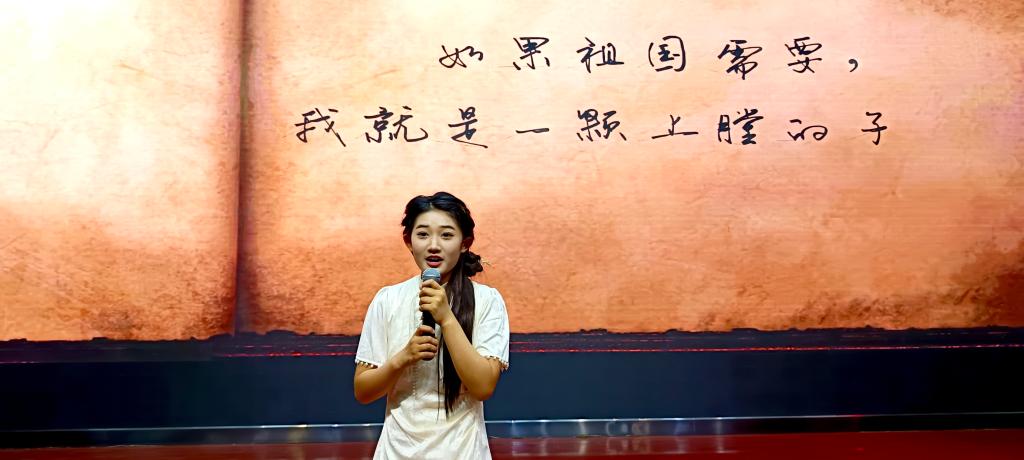 如果祖国需要，
我就是一颗上膛的子